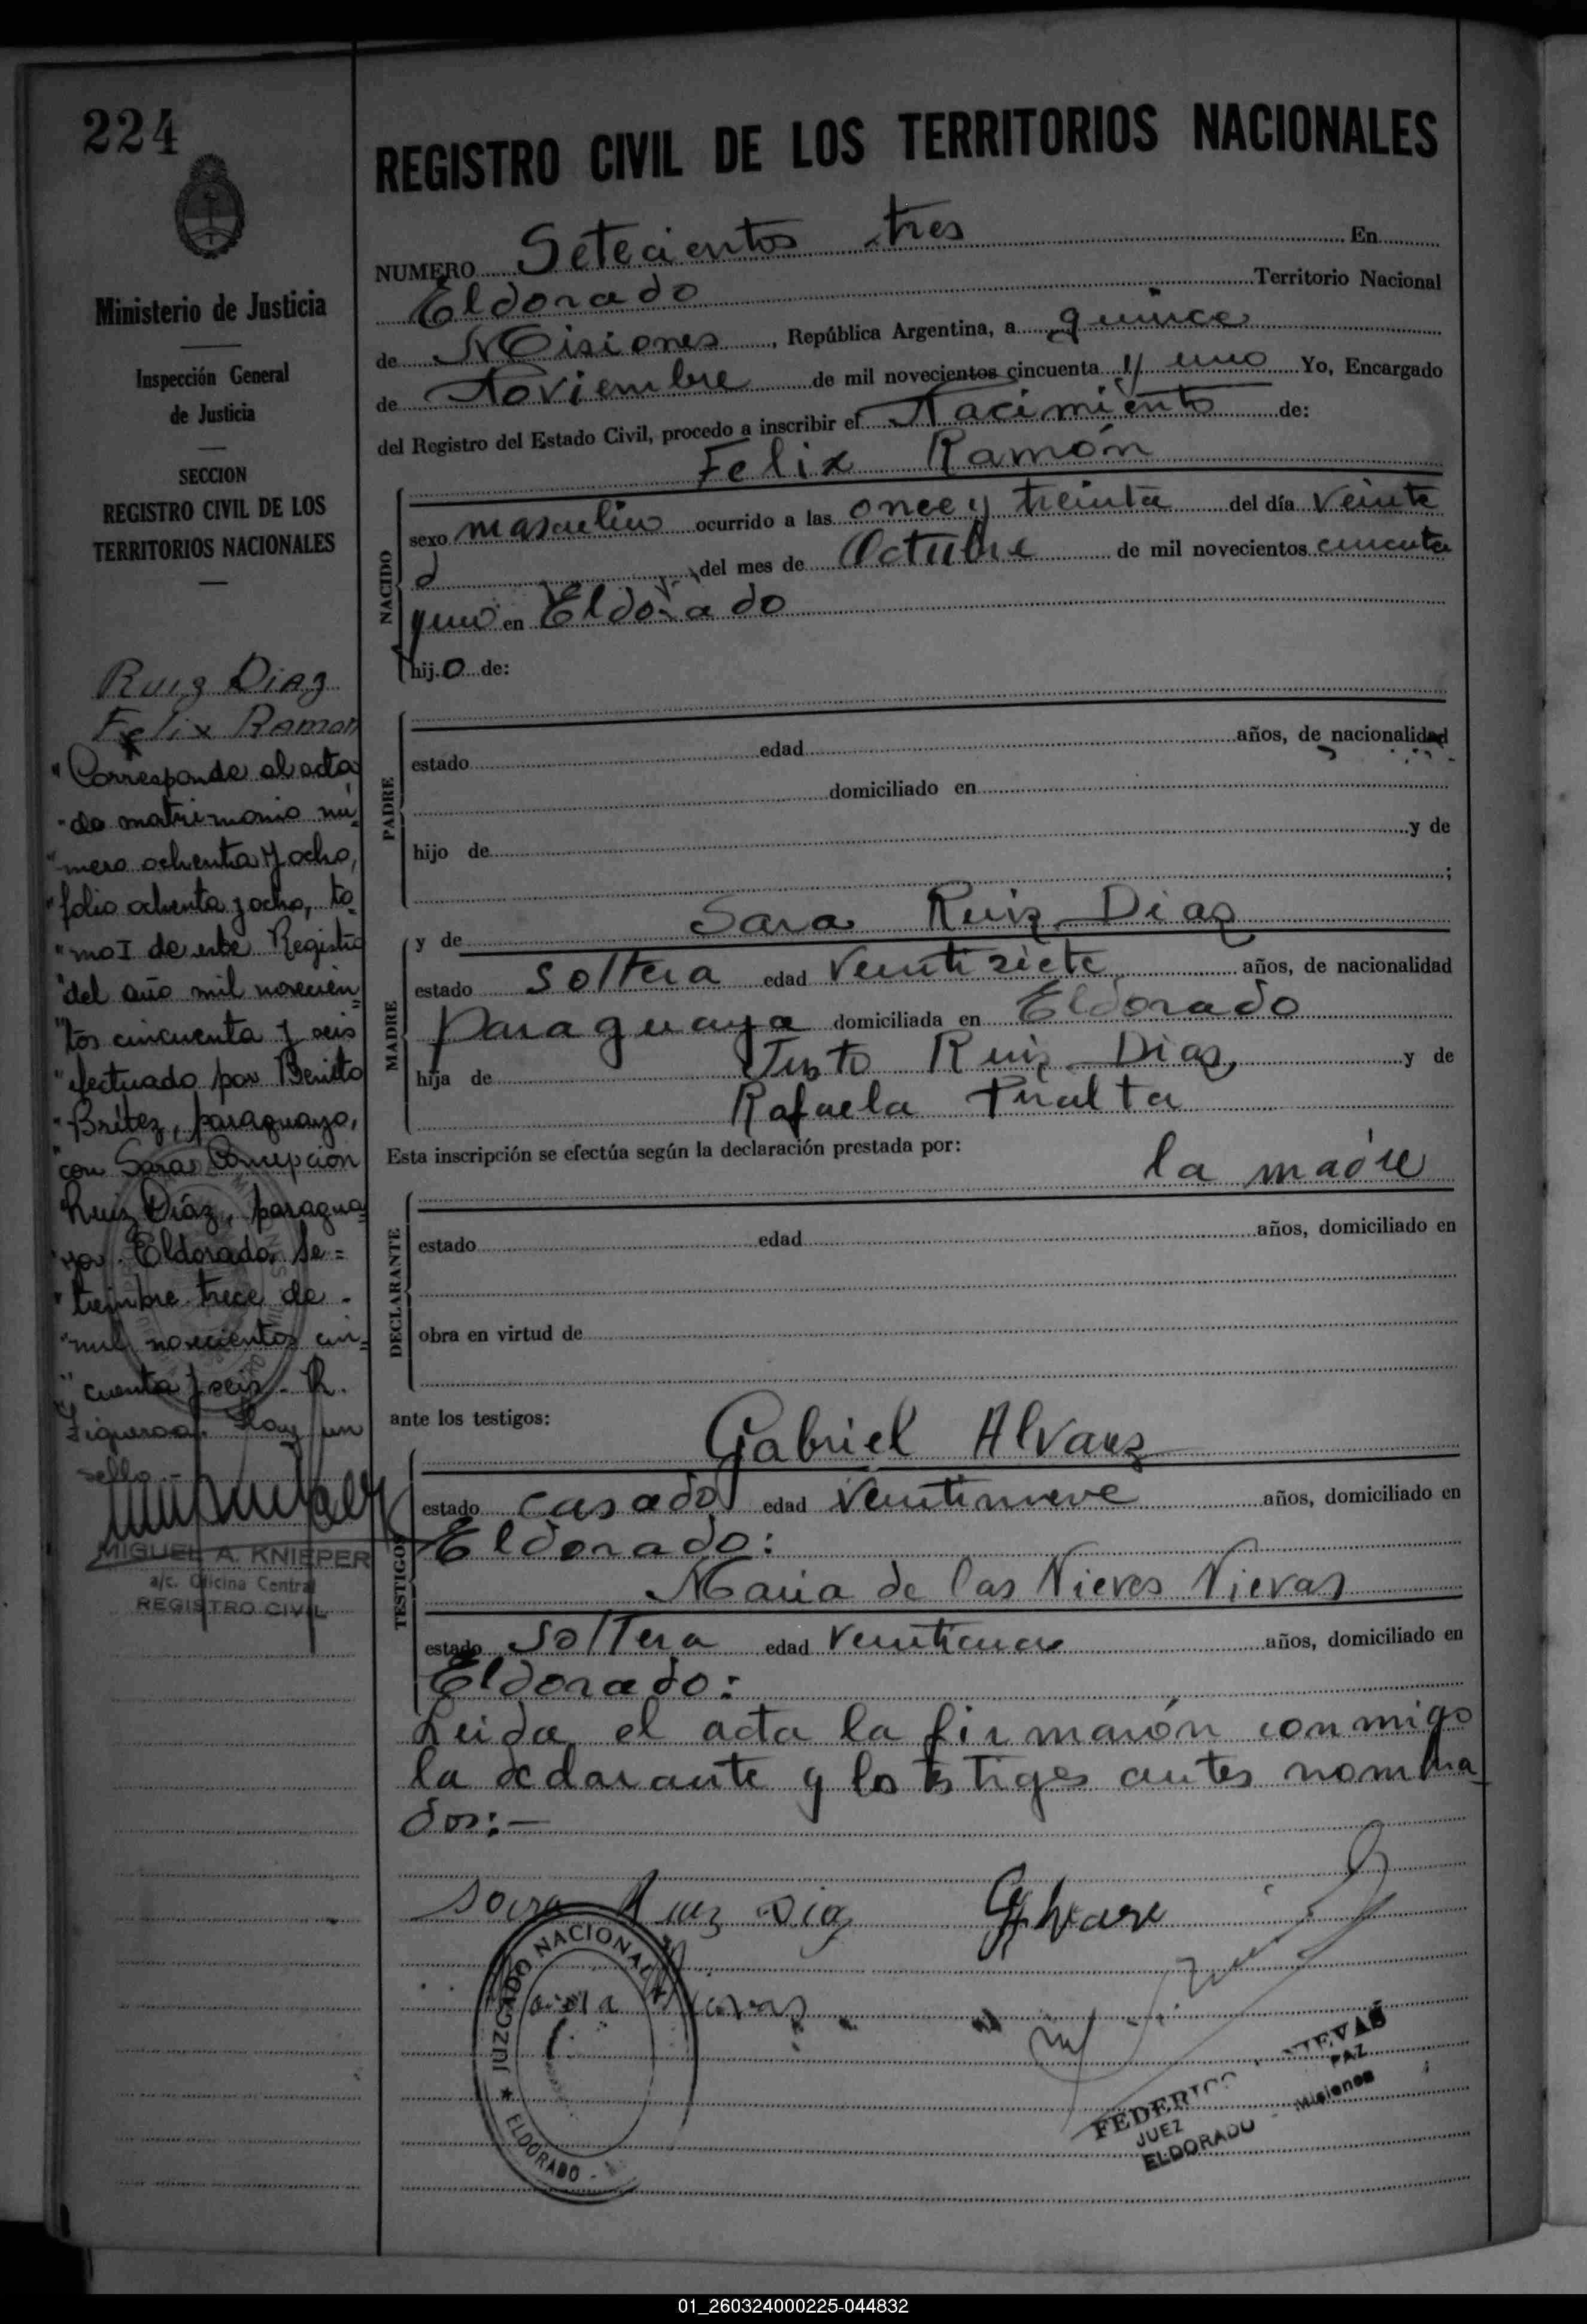 224
Ministerio de Justicia
Inspección General
de Justicia
SECCION
REGISTRO CIVIL DE LOS
TERRITORIOS NACIONALES
Ruiz Diaz
Felix Ramon
"Corresponde al acta
"de matrimonio nú
"mero ochenta y ocho,
"folio ochenta y ocho, to
"mo I de este Registro
"del año mil novecien=
"tos cincuenta y seis
"efectuado por Benito
"Britez, paraguayo,
"con Sara Concepcion
Ruiz Díaz, paragua
"ya. Eldorado, Se=
"tiembre trece de
"mil novecientos cin=
"cuenta y seis - R.
Figueroa. Hay un
sello.-
MIGUEL A. KNIEPER
a/c. Oficina Central
REGISTRO CIVIL
REGISTRO CIVIL DE LOS TERRITORIOS NACIONALES
NUMERO Setecientos tres En
Eldorado Territorio Nacional
de Misiones, República Argentina, a quince
de Noviembre de mil novecientos cincuenta y uno Yo, Encargado
del Registro del Estado Civil, procedo a inscribir el Nacimiento de:
Felix Ramón
NACIDO
sexo masculino ocurrido a las once y treinta del día veinte
del mes de Octubre de mil novecientos cincuenta
yuno en Eldorado
hijo de:
PADRE
estado edad años, de nacionalidad
domiciliado en
hijo de y de
;
MADRE
y de Sara Ruiz Diaz
estado soltera edad ventisiete años, de nacionalidad
paraguaya domiciliada en Eldorado
hija de Justo Ruiz Diaz y de
Rafaela Piralta
Esta inscripción se efectúa según la declaración prestada por:
la madre
DECLARANTE
estado edad años, domiciliado en
obra en virtud de
ante los testigos:
Gabriel Alvarez
TESTIGOS
estado casado edad ventinueve años, domiciliado en
Eldorado:
Maria de las Nieves Nievas
estado soltera edad años, domiciliado en
Eldorado:
Leida el acta la firmarón conmigo
la declarante y los testigos antes nombra
dos:-
Sara Ruiz Diaz
JUZGADO NACIONAL
ELDORADO -
FEDERICO NIEVAS
JUEZ PAZ
ELDORADO - Misiones
01_260324000225-044832